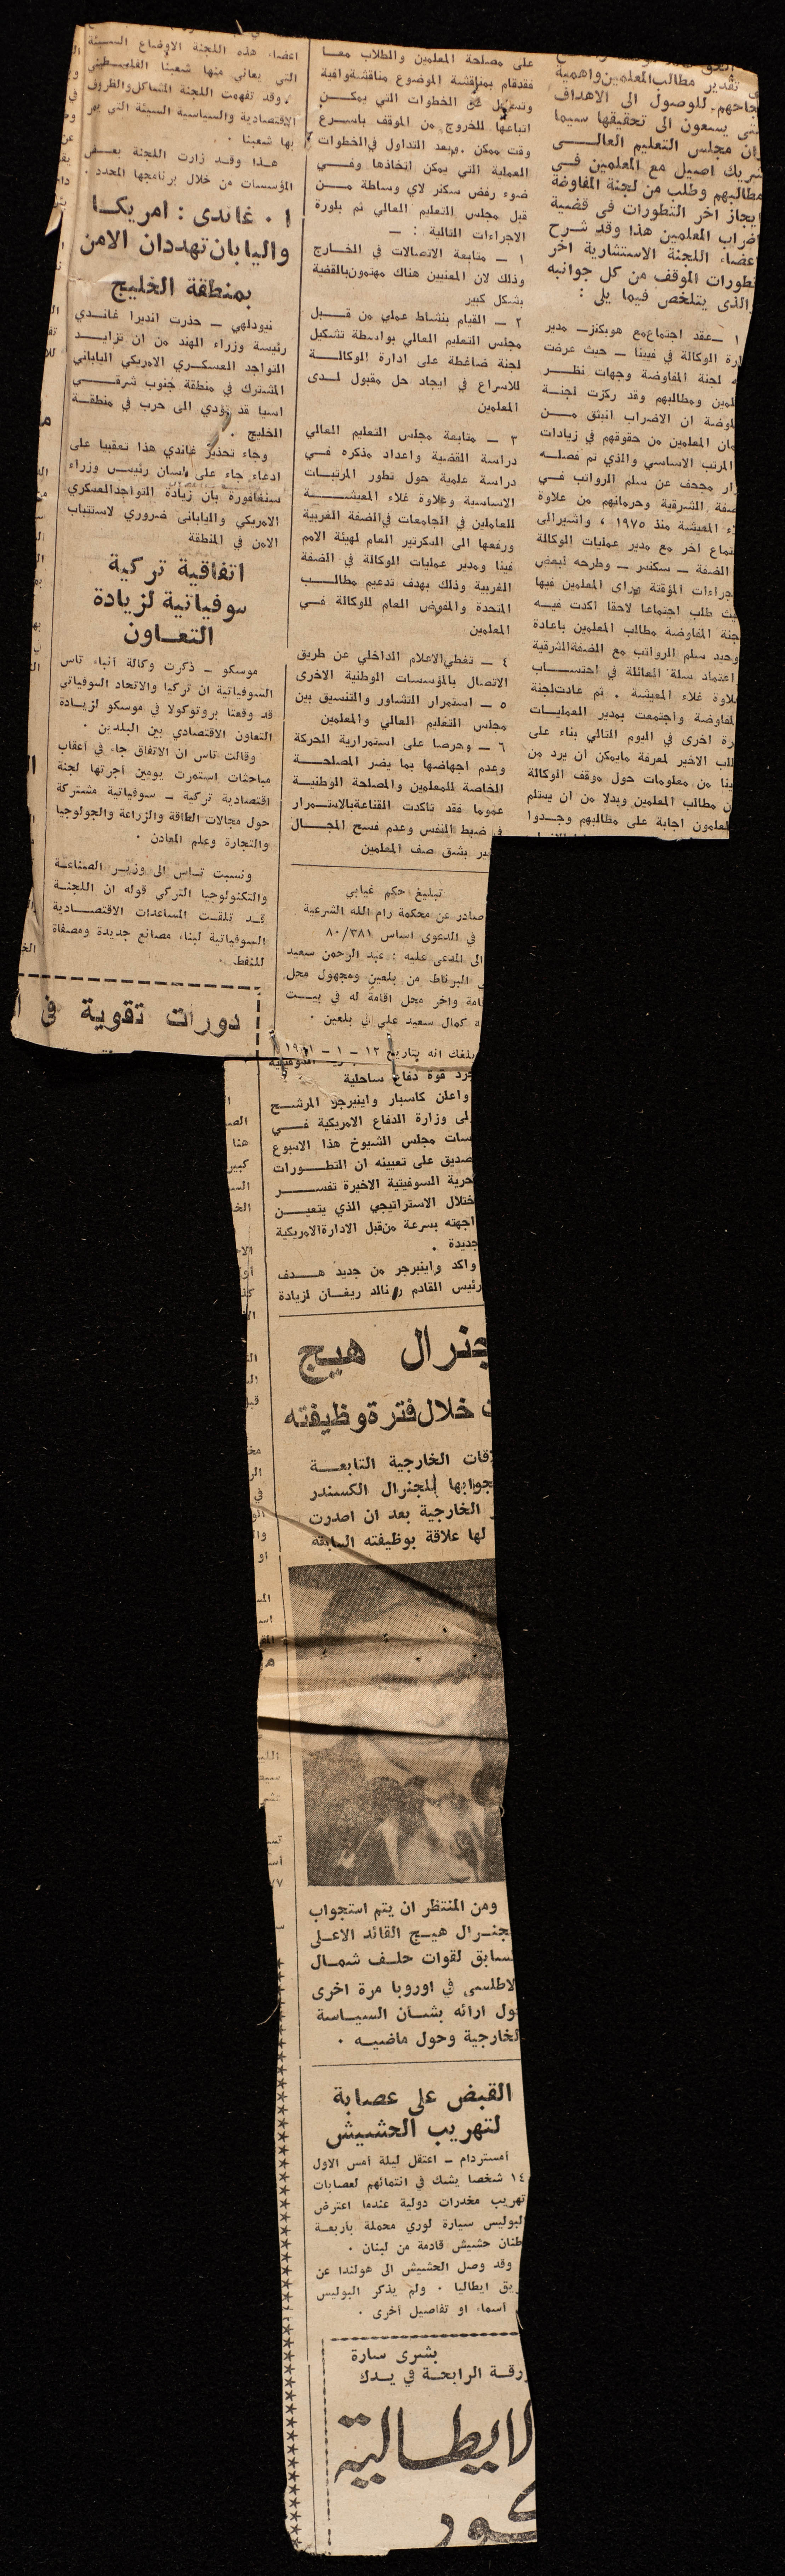 تقدير مطالب المعلمين واهمية
نجاحهم . للوصول الى الاهداف
يسعون الى تحقيقها سيما
وان مجلس التعليم العالــي
شريك اصيل مع المعلمين فــي
مطالبهم وطلب من لجنة المفاوضة
ايجاز اخر التطورات في قضية
اضراب المعلمين هذا وقد شــرح
اعضاء اللجنة الاستشارية اخر
تطورات الموقف من كل جوانبه
والذي يتلخص فيما يلي :
١ – عقد اجتماع مع هوبكنز – مدير
ارة الوكالة في فيينا – حيث عرضت
لجنة المفاوضة وجهات نظــر
لمين ومطالبهم وقد ركزت لجنــة
لوضة ان الاضراب انبثق مــن
مان المعلمين من حقوقهم في زيادات
المرتب الاساسي والذي تم فصلــه
رار مجحف عن سلم الرواتب فــي
ضفة الشرقية وحرمانهم من علاوة
ء المعيشة منذ ١٩٧٥ ، واشير الى
تماع اخر مع مدير عمليات الوكالة
الضفة – سكنسر – وطرحه لبعض
جراءات المؤقتة
يث طلب اجتماعا لاحقا اكدت فيــه
جنة المفاوضة مطالب المعلمين باعادة
وحيد سلم الرواتب مع الضفة الشرقية
اعتماد سلة العائلة في احتســاب
علاوة غلاء المعيشة . ثم عادت لجنة
لمفاوضة واجتمعت بمدير العمليــات
رة اخرى في اليوم التالي بناء على
لب الاخير لمعرفة مايمكن ان يرد من
ينا من معلومات حول موقف الوكالة
ن مطالب المعلمين وبدلا من ان يستلم
علمون اجابة على مطالبهم وجــدوا
على مصلحة المعلمين والطلاب معــا
فقد قام بمناقشة الموضوع مناقشة وافية
الخطوات التي يمكــن
اتباعها للخروج من الموقف باســرع
وقت ممكن . وبعد التداول في الخطوات
العملية التي يمكن اتخاذها وفــي
ضوء رفض سكنر لاي وساطة مــن
قبل مجلس التعليم العالي تم بلورة
الاجراءات التالية : –
١ – متابعة الاتصالات في الخــارج
وذلك لان المعنيين هناك مهتمون بالقضية
بشكل كبير
٢ – القيام بنشاط عملي من قــبل
مجلس التعليم العالي بواسطة تشكيل
لجنة ضاغطة على ادارة الوكالــة
للاسراع في ايجاد حل مقبول لــدى
المعلمين
٣ – متابعة مجلس التعليم العالي
دراسة القضية واعداد مذكره فــي
دراسة علمية حول تطور المرتبــات
الاساسية وعلاوة غلاء المعيشــة
للعاملين في الجامعات في الضفة الغربية
ورفعها الى السكرتير العام لهيئة الامم
فينا ومدير عمليات الوكالة في الضفة
الغربية وذلك بهدف تدعيم مطالــب
المتحدة والمفوض العام للوكالة فــي
المعلمين
٤ – تغطي الاعلام الداخلي عن طريق
الاتصال بالمؤسسات الوطنية الاخرى
٥ – استمرار التشاور والتنسيق بين
مجلس التعليم العالي والمعلمين
٦ – وحرصا على استمرارية الحركة
وعدم اجهاضها بما يضر المصلحــة
الخاصة للمعلمين والمصلحة الوطنيــة
عموما فقد تاكدت القناعة بالاستــمرار
في ضبط النفس وعدم فسح المجــال
بشق صف المعلمين
تبليغ حكم غيابي
صادر عن محكمة رام الله الشرعية
في الدعوى اساس ٨٠/٣٨١
الى المدعى عليه : عبد الرحمن سعيد
البرناط من بلعين ومجهول محل
قامة واخر محل اقامة له في بيــت
كمال سعيد علي في بلعين .
بلغك انه بتاريخ ١٣ – ١ –
جرد قوة دفاع ساحلية
واعلن كاسبار واينبرجر المرشــح
لى وزارة الدفاع الامريكية فــي
سات مجلس الشيوخ هذا الاسبوع
صديق على تعيينه ان التطــورات
حرية السوفيتية الاخيرة تفســر
ختلال الاستراتيجي الذي يتعيــن
اجهته بسرعة من قبل الادارة الامريكية
جديدة .
واكد واينبرجر من جديد هــدف
رئيس القادم رونالد ريغــان لزيادة
جنرال هيج
خلال فترة وظيفته
اقات الخارجية التابعــة
جوابها للجنرال الكسندر
الخارجية بعد ان اصدرت
لها علاقة بوظيفته السابقة
ومن المنتظر ان يتم استجواب
لجنــرال هيــج القائد الاعلى
لسابق لقوات حلــف شمــال
لاطلسي في اوروبا مرة اخرى
حول ارائه بشــأن السياسة
لخارجية وحول ماضيــه .
القبض على عصابة
لتهريب الحشيش
أمستردام – اعتقل ليلة أمس الاول
١٤ شخصا يشك في انتمائهم لعصابات
تهريب مخدرات دولية عندما اعترض
البوليس سيارة لوري محملة بأربعــة
طنان حشيش قادمة من لبنان .
وقد وصل الحشيش الى هولندا عن
ريق ايطاليا . ولم يذكر البوليس
أسماء او تفاصيل أخرى .
بشرى سارة
ورقــة الرابحــة في يــدك
لايطــالية
كــود
اعضاء هذه اللجنة الاوضاع السيئة
التي يعاني منها شعبنا الفلسطيني
. وقد تفهمت اللجنة المشاكل والظروف
الاقتصادية والسياسية السيئة التي يمر
بها شعبنا .
هــذا وقــد زارت اللجنة بعــض
المؤسسات من خلال برنامجها المحدد .
ا . غاندي : امريكــا
واليابان تهددان الامن
بمنطقة الخليج
نيودلهي – حذرت انديرا غانــدي
رئيسة وزراء الهند من ان تزايــد
التواجد العسكــري الامريكي الياباني
المشترك في منطقة جنوب شرقــي
اسيا قد يؤدي الى حرب في منطقــة
الخليج .
وجاء تحذير غاندي هذا تعقيبا على
ادعاء جاء على لسان رئيــس وزراء
سنغافورة بان زيادة التواجد العسكري
الامريكي والياباني ضروري لاستتباب
الامن في المنطقة
اتفاقية تركية
سوفياتية لزيادة
التعــاون
موسكو – ذكرت وكالة أنباء تاس
السوفياتية ان تركيا والاتحاد السوفياتي
قد وقعتا بروتوكولا في موسكو لزيــادة
التعاون الاقتصادي بين البلدين .
وقالت تاس ان الاتفاق جاء في أعقاب
مباحثات استمرت يومين أجرتها لجنة
اقتصادية تركية – سوفياتية مشتركة
حول مجالات الطاقة والزراعة والجولوجيا
والتجارة وعلم المعادن .
ونسبت تــاس الى وزيــر الصناعــة
والتكنولوجيا التركي قوله ان اللجنــة
قــد تلقــت المساعدات الاقتصــادية
السوفياتية لبناء مصانع جديدة ومصفاة
للنفط .
دورات تقوية في